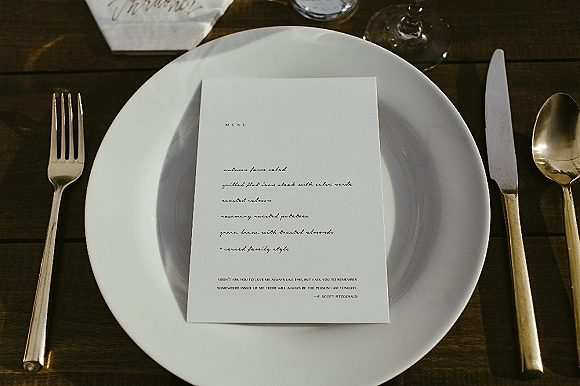 MENU
autumn farm salad
grilled flat iron steak with salsa verde
roasted salmon
rosemary roasted potatoes
green beans with toasted almonds
* served family style
I DON'T ASK YOU TO LOVE ME ALWAYS LIKE THIS, BUT I ASK YOU TO REMEMBER
SOMEWHERE INSIDE OF ME THERE WILL ALWAYS BE THE PERSON I AM TONIGHT.
—F. SCOTT FITZGERALD